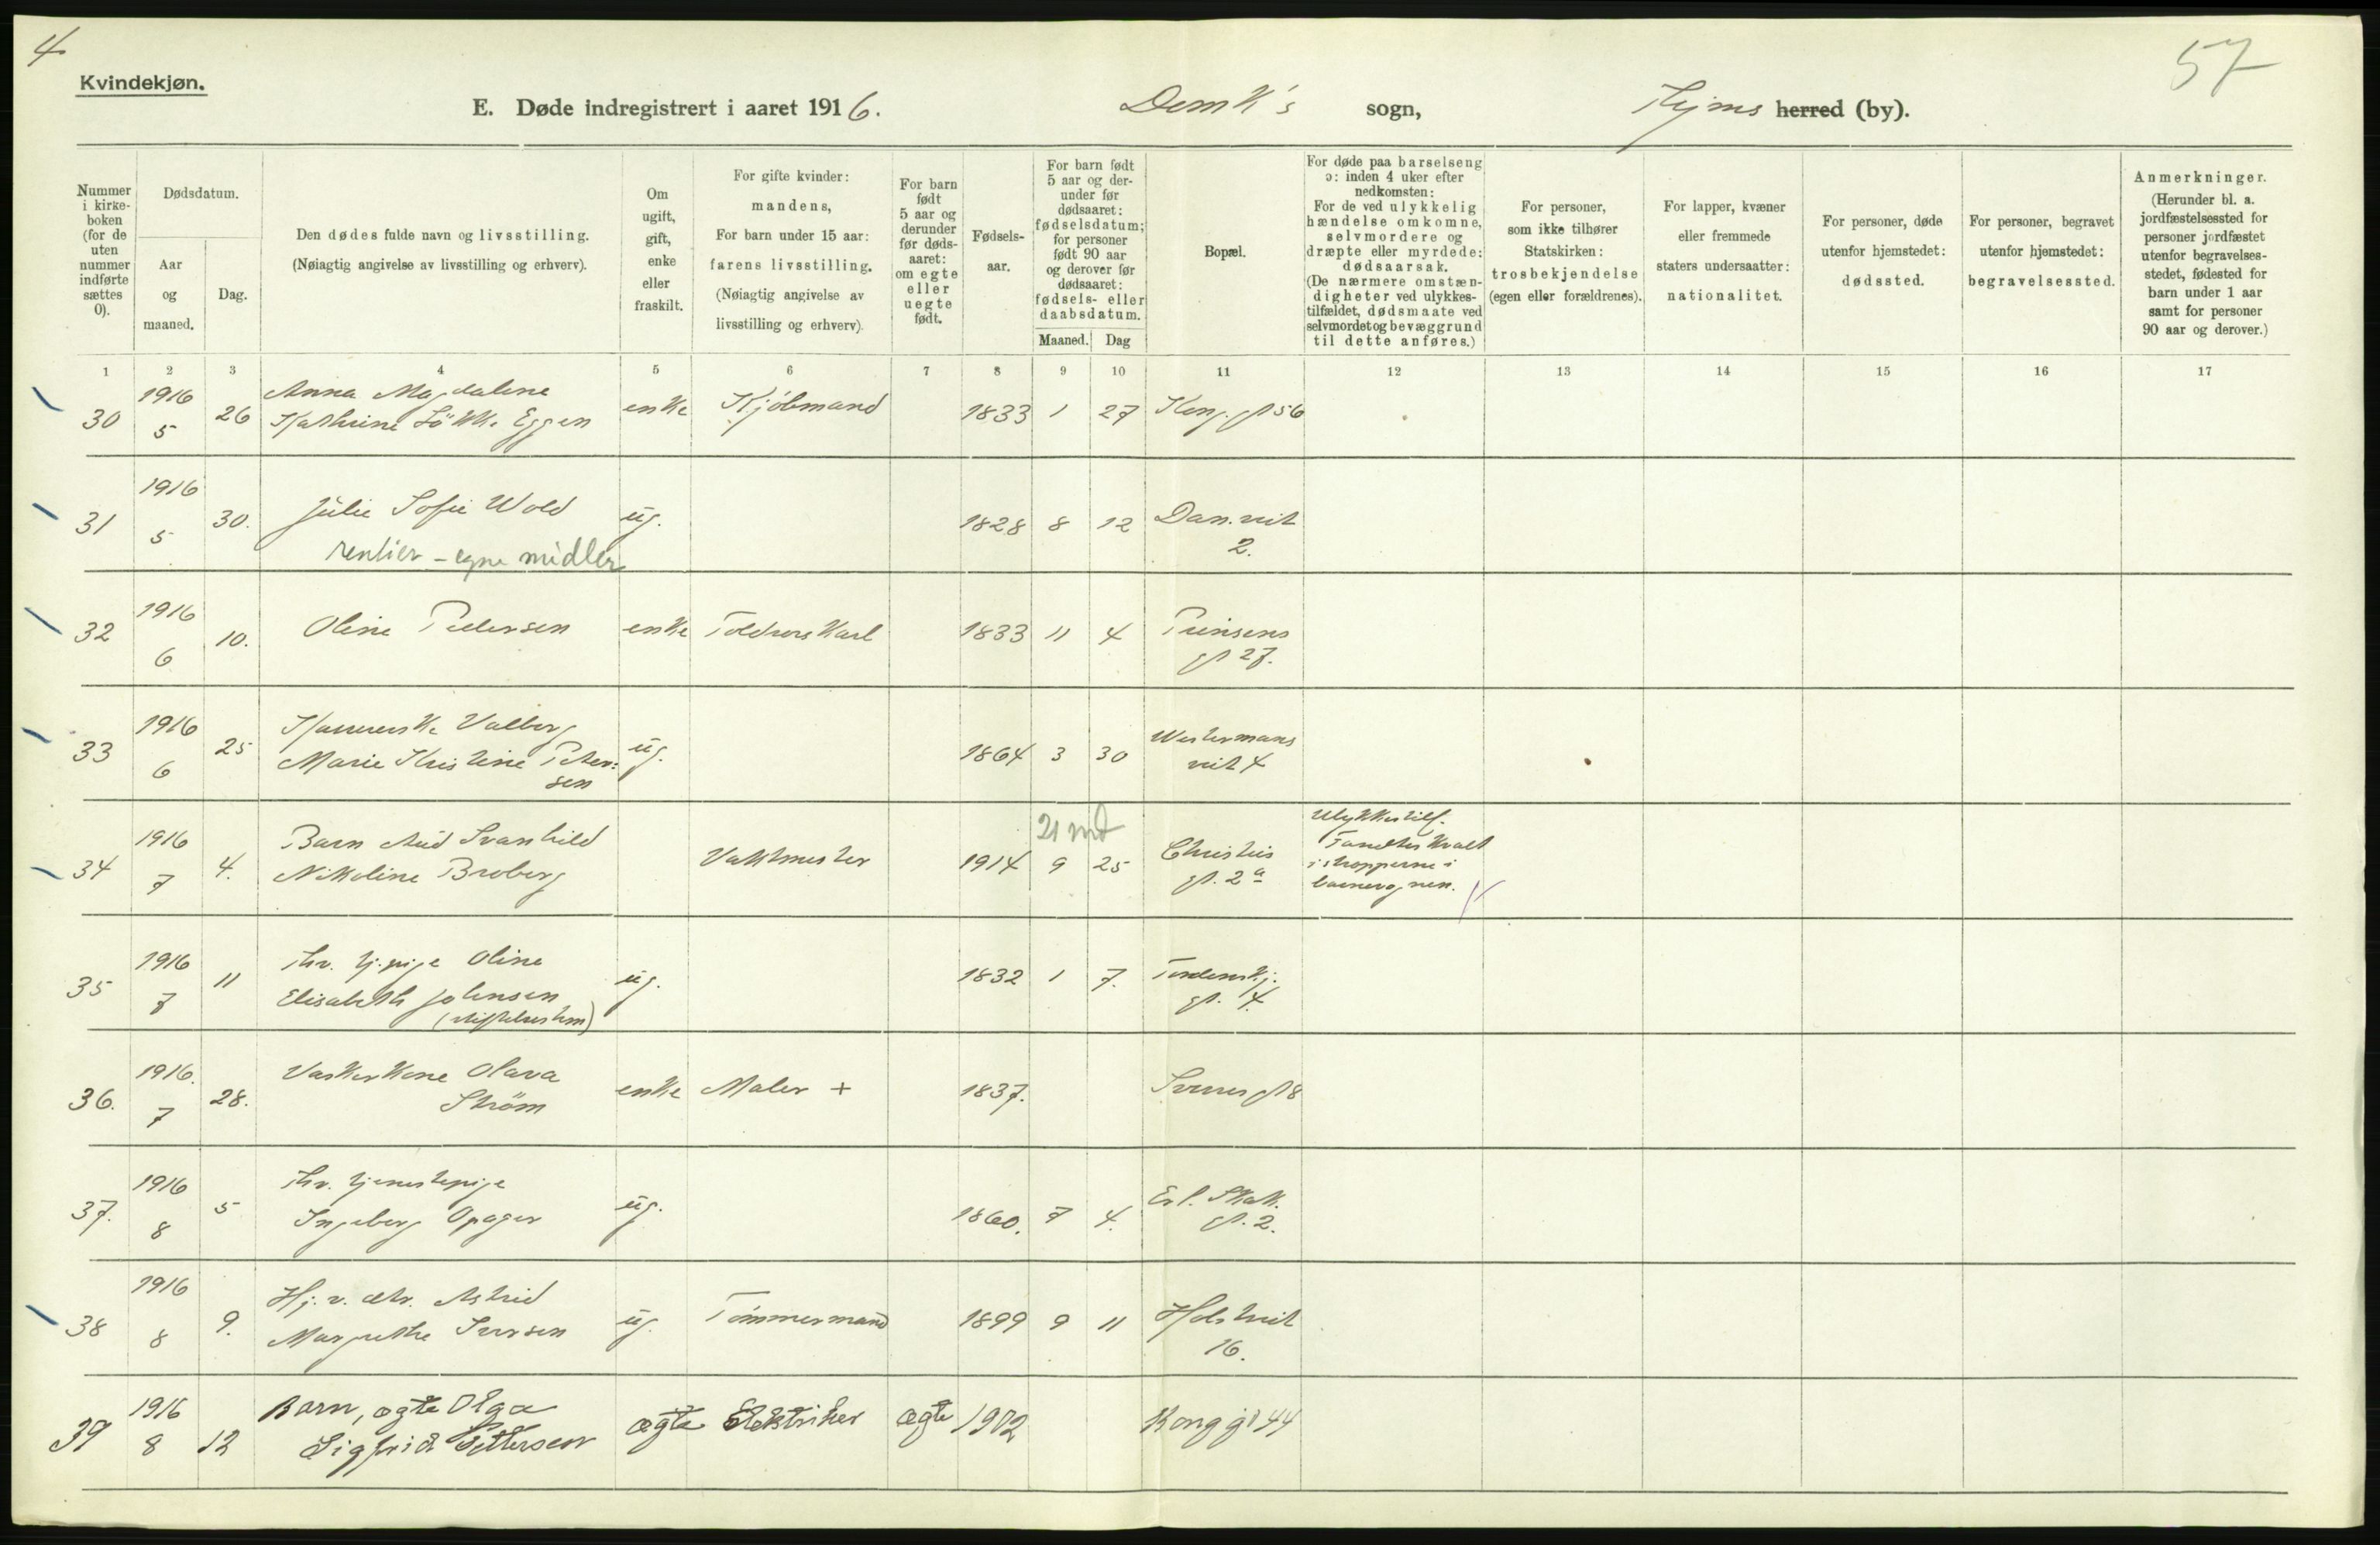 4
57
Kvindekjøn.
E. Døde indregistrert i aaret 1916. DomK's sogn, Thjms herred (by).
Nummer i kirke-boken (for de uten nummer indførte sættes 0).
Dødsdatum.
Aar og maaned.
Dag.
Den dødes fulde navn og livsstilling.
(Nøiagtig angivelse av livsstilling og erhverv).
Om ugift, gift, enke eller fraskilt.
For gifte kvinder: mandens,
For barn under 15 aar: farens livsstilling.
(Nøiagtig angivelse av livsstilling og erhverv).
For barn født 5 aar og derunder før døds-aaret: om egte eller uegte født.
Fødsels-aar.
For barn født 5 aar og der-under før dødsaaret: fødselsdatum; for personer født 90 aar og derover før dødsaaret: fødsels- eller daabsdatum.
Maaned. Dag
Bopæl.
For døde paa barselseng ɔ: inden 4 uker efter nedkomsten:
For de ved ulykkelig hændelse omkomne, selvmordere og dræpte eller myrdede: dødsaarsak.
(De nærmere omstæn-digheter ved ulykkes-tilfældet, dødsmaate ved selvmordet og bevæggrund til dette anføres.)
For personer, som ikke tilhører Statskirken: trosbekjendelse (egen eller forældrenes).
For lapper, kvæner eller fremmede staters undersaatter: nationalitet.
For personer, døde utenfor hjemstedet: dødssted.
For personer, begravet utenfor hjemstedet: begravelsessted.
Anmerkninger.
(Herunder bl. a. jordfæstelsessted for personer jordfæstet utenfor begravelses-stedet, fødested for barn under 1 aar samt for personer 90 aar og derover.)
1 2 3 4 5 6 7 8 9 10 11 12 13 14 15 16 17
30 1916 5 26 Anna Magdalene Kathrine Lökke Eggen enke Kjöbmand 1833 1 27 Kong. gt 56
31 1916 5 30. Julie Sofie Wold ug. 1828 8 12 Dan.veit 2.
rentier - egne midler
32 1916 6 10. Oline Pedersen enke Toldvers Karl 1833 11 4 Prinsens gt 27.
33 1916 6 25 Valborg Marie Kristine Peter=sen ug. 1864 3 30 Westermans veit 4
34 1916 7 4. Barn Aud Svanhild Nikoline Broberg Vaktmester 21 md 1914 9 25 Christies gt. 2a Ulykkestilf. i stropperne i barnevognen.
35 1916 7 11 fhv. tj.pige Oline Elisabeth Johnsen ug. 1832 1 7. Tordenskj. gt. 4.
36. 1916. 7 28. Vaskerkone Olava Ström enke Maler + 1837. Sverres gt 8
37. 1916 8 5 fhv. tjenestepige Ingeborg Opager ug. 1860. 7 4. Erl. Skak. gt. 2.
38 1916 8 9. Hj. v. Astrid Margrethe Iversen ug. Tömmermand 1899 9 11 Holstveit 16.
39 1916 8 12 Barn, ægte Olga Sigfrid Pettersen ægte Elektriker ægte 1902 Kong gt 44